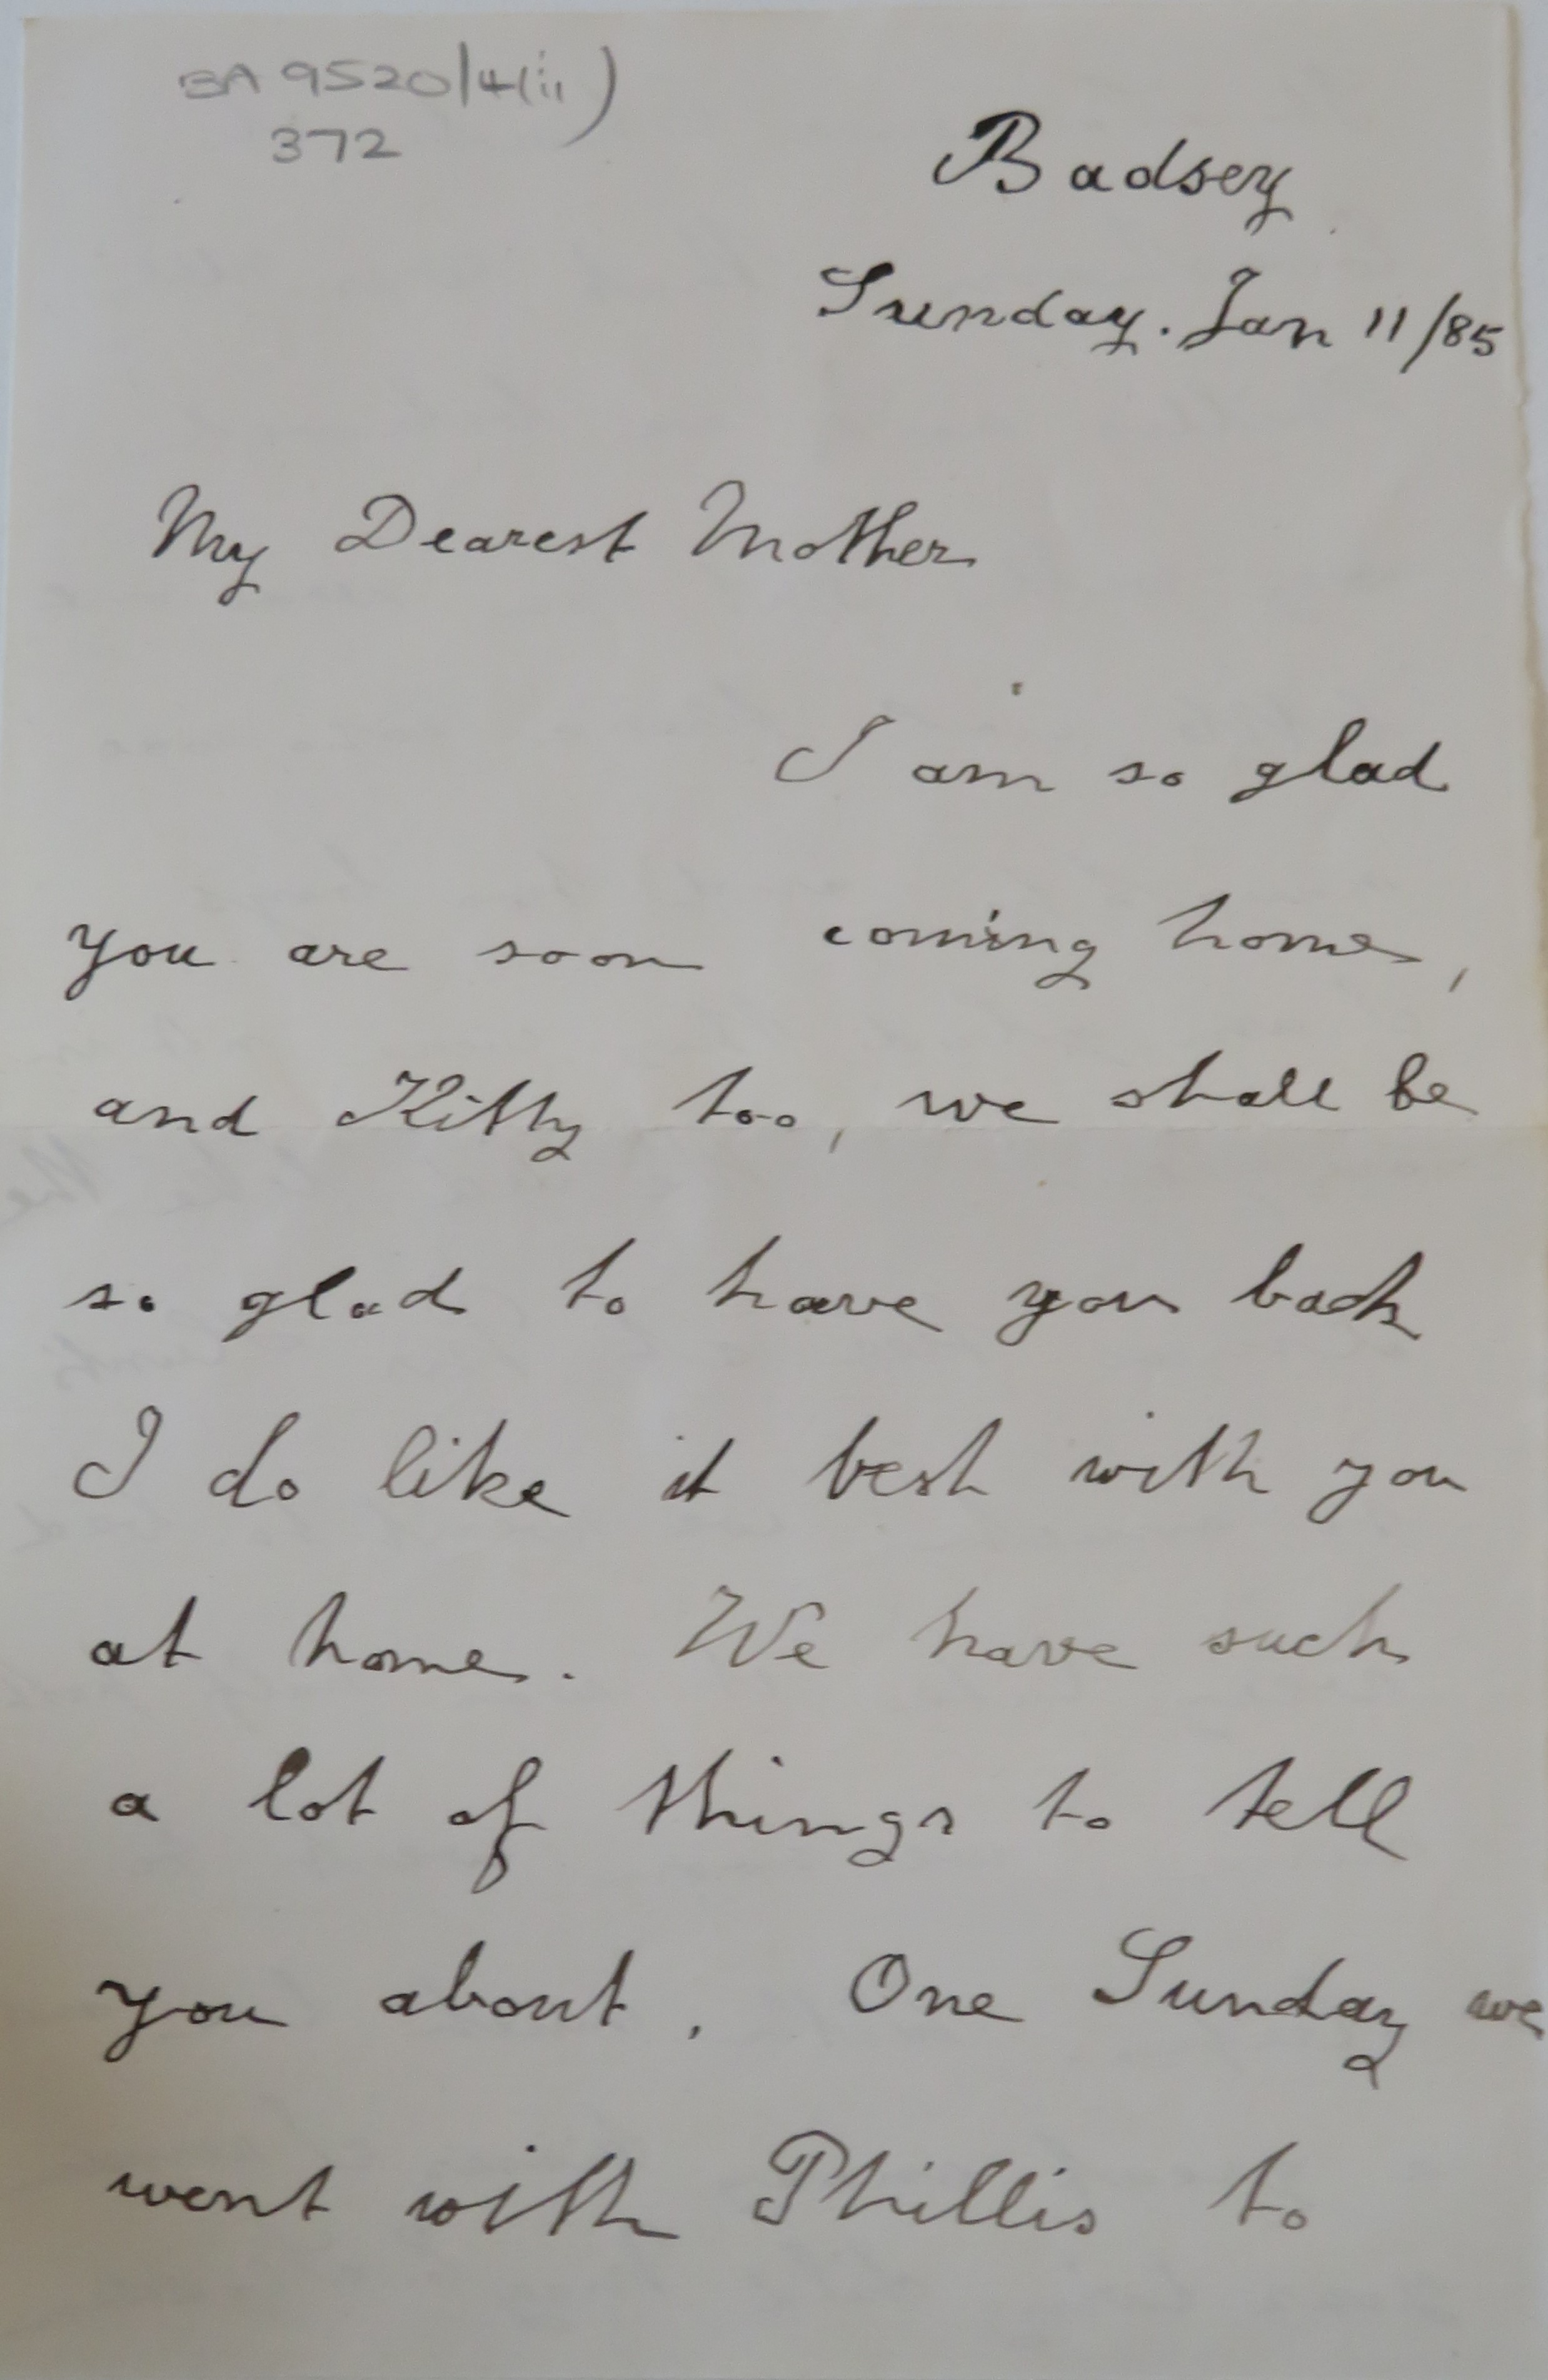 BA 9520/4(ii)
372
Badsey
Sunday. Jan 11/85
My Dearest Mother
I am so glad
you are soon coming home,
and Kitty too, we shall be
so glad to have you back
I do like it best with you
at home. We have such
a lot of things to tell
you about. One Sunday we
went with Phillis to